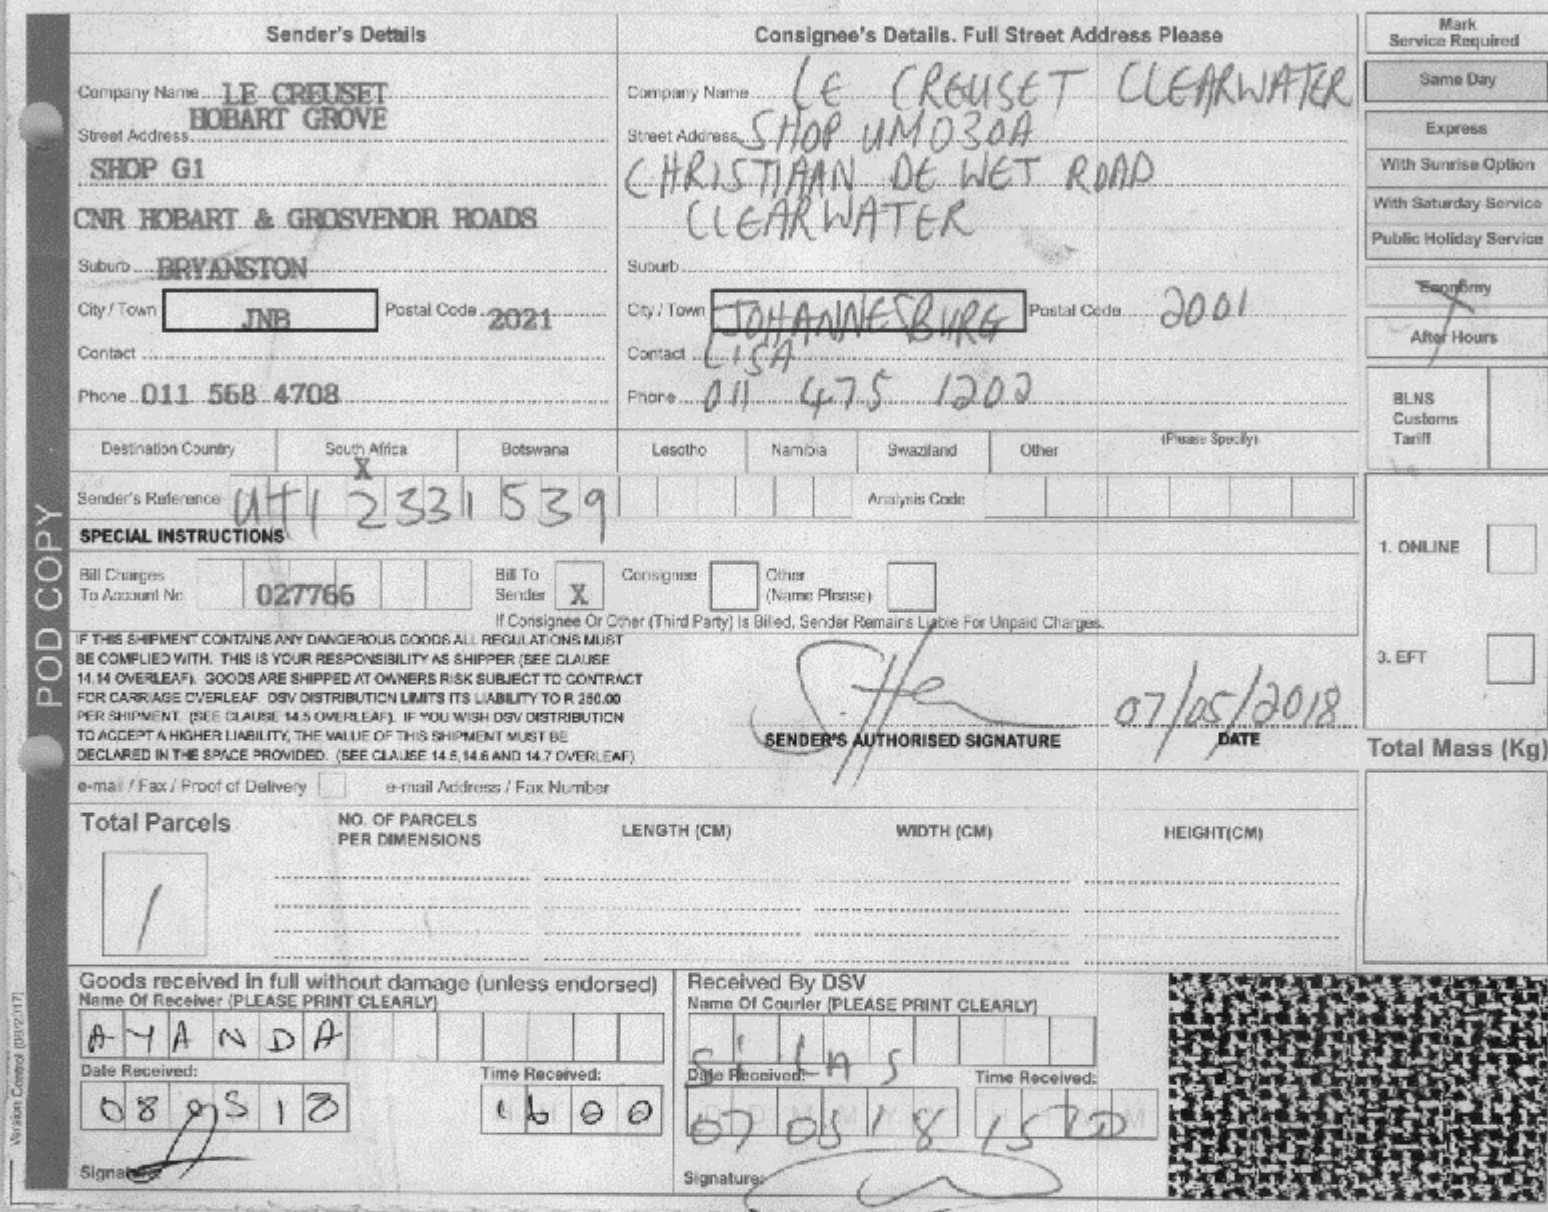 Sender's Details
Company Name LE CREUSET
HOBART GROVE
Street Address
SHOP G1
CNR HOBART & GROSVENOR ROADS
Suburb BRYANSTON
City / Town JNB Postal Code 2021
Contact
Phone 011 568 4708
Consignee's Details. Full Street Address Please
Company Name LE CREUSET CLEARWATER
Street Address SHOP UM030A
CHRISTIAAN DE WET ROAD
CLEARWATER
Suburb
City / Town JOHANNESBURG Postal Code 2001
Contact LISA
Phone 011 475 1202
Mark
Service Required
Same Day
Express
With Sunrise Option
With Saturday Service
Public Holiday Service
Economy
After Hours
BLNS
Customs
Tariff
Destination Country South Africa Botswana Lesotho Namibia Swaziland Other (Please Specify)
X
Sender's Reference UHI 2331539 Analysis Code
SPECIAL INSTRUCTIONS
Bill Charges
To Account No 027766
Bill To
Sender X
Consignee
Other
(Name Please)
If Consignee Or Other (Third Party) Is Billed, Sender Remains Liable For Unpaid Charges.
1. ONLINE
3. EFT
IF THIS SHIPMENT CONTAINS ANY DANGEROUS GOODS ALL REGULATIONS MUST
BE COMPLIED WITH. THIS IS YOUR RESPONSIBILITY AS SHIPPER (SEE CLAUSE
14.14 OVERLEAF). GOODS ARE SHIPPED AT OWNERS RISK SUBJECT TO CONTRACT
FOR CARRIAGE OVERLEAF. DSV DISTRIBUTION LIMITS ITS LIABILITY TO R 250.00
PER SHIPMENT. (SEE CLAUSE 14.5 OVERLEAF). IF YOU WISH DSV DISTRIBUTION
TO ACCEPT A HIGHER LIABILITY, THE VALUE OF THIS SHIPMENT MUST BE
DECLARED IN THE SPACE PROVIDED. (SEE CLAUSE 14.5,14.6 AND 14.7 OVERLEAF)
07/05/2018
SENDER'S AUTHORISED SIGNATURE DATE
e-mail / Fax / Proof of Delivery e-mail Address / Fax Number
Total Mass (Kg)
Total Parcels
1
NO. OF PARCELS
PER DIMENSIONS
LENGTH (CM) WIDTH (CM) HEIGHT(CM)
Goods received in full without damage (unless endorsed)
Name Of Receiver (PLEASE PRINT CLEARLY)
AYANDA
Date Received: Time Received:
080518 1600
Signature:
Received By DSV
Name Of Courier (PLEASE PRINT CLEARLY)
SILAS
Date Received: Time Received:
070518
Signature:
POD COPY
Version Control (08/2017)